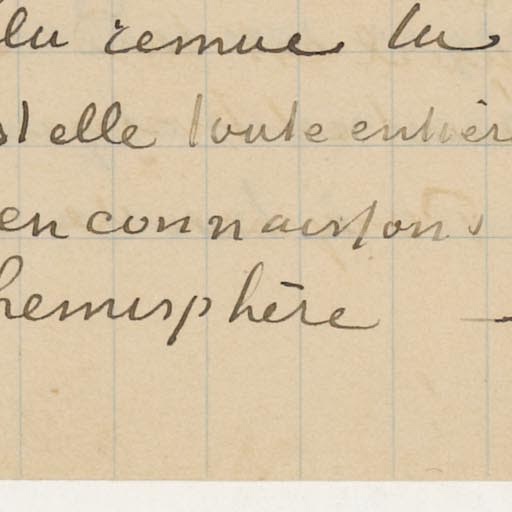 lu remue la
st elle toute entièr
en connaissons
hemisphère —